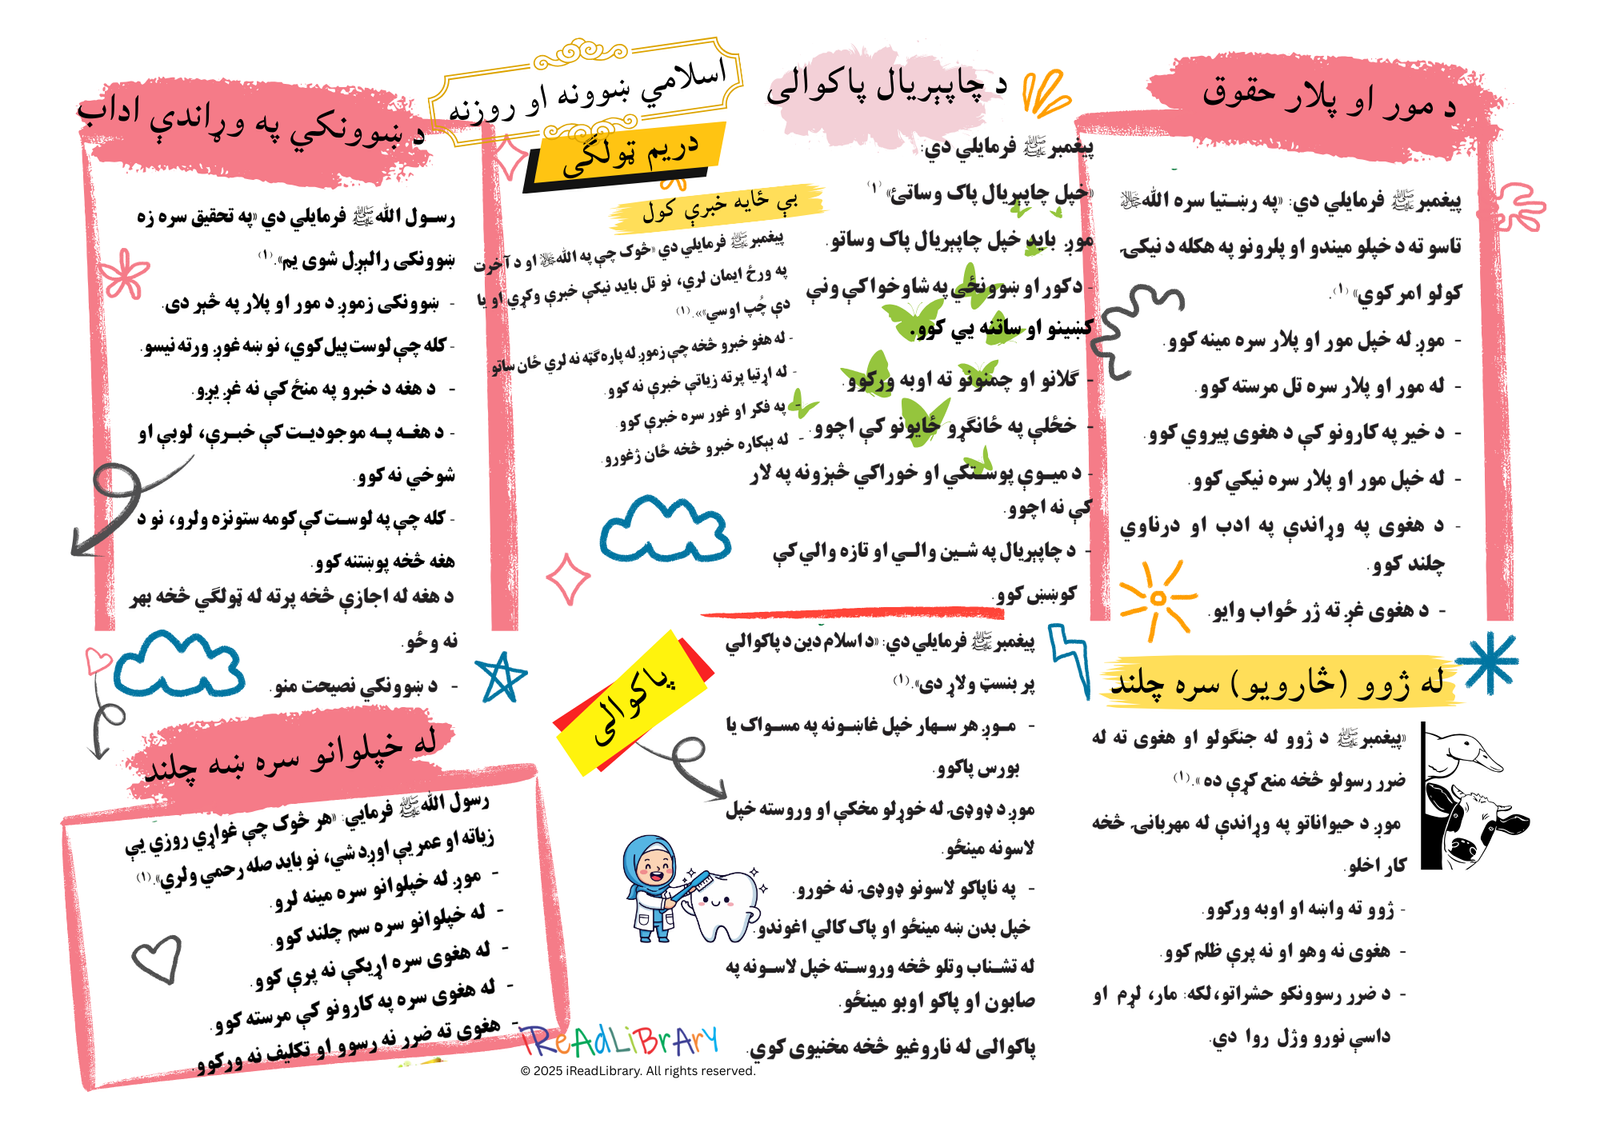 د مور او پلار حقوق
پیغمبرﷺ فرمایلي دي: «په رښتیا سره اللهﷻ
تاسو ته د خپلو میندو او پلرونو په هکله د نیکۍ
کولو امر کوي» (۱).
- موږ له خپل مور او پلار سره مینه کوو.
- له مور او پلار سره تل مرسته کوو.
- د خیر په کارونو کې د هغوی پیروي کوو.
- له خپل مور او پلار سره نیکي کوو.
- د هغوی په وړاندې په ادب او درناوي
چلند کوو.
- د هغوی غږ ته ژر ځواب وایو.
له ژوو (څارویو) سره چلند
«پیغمبرﷺ د ژوو له جنګولو او هغوی ته له
ضرر رسولو څخه منع کړې ده». (۱)
موږ د حیواناتو په وړاندې له مهربانۍ څخه
کار اخلو.
- ژوو ته واښه او اوبه ورکوو.
- هغوی نه وهو او نه پرې ظلم کوو.
- د ضرر رسوونکو حشراتو،لکه: مار، لړم او
داسې نورو وژل روا دي.
د چاپېریال پاکوالی
پیغمبرﷺ فرمایلي دي:
«خپل چاپېریال پاک وساتئ» (۱)
موږ باید خپل چاپېریال پاک وساتو.
- د کور او ښوونځي په شاوخوا کې ونې
کښینو او ساتنه یې کوو.
- ګلانو او چمنونو ته اوبه ورکوو.
- خځلې په ځانګړو ځایونو کې اچوو.
- د میوې پوستکي او خوراکي څیزونه په لار
کې نه اچوو.
- د چاپېریال په شین والي او تازه والي کې
کوښښ کوو.
پاکوالی
پیغمبرﷺ فرمایلي دي: «د اسلام دین د پاکوالي
پر بنسټ ولاړ دی». (۱)
- موږ هر سهار خپل غاښونه په مسواک یا
بورس پاکوو.
موږ د ډوډۍ له خوړلو مخکې او وروسته خپل
لاسونه مینځو.
- په ناپاکو لاسونو ډوډۍ نه خورو.
خپل بدن ښه مینځو او پاک کالي اغوندو.
له تشناب وتلو څخه وروسته خپل لاسونه په
صابون او پاکو اوبو مینځو.
پاکوالی له ناروغیو څخه مخنیوی کوي.
اسلامي ښوونه او روزنه
دریم ټولګی
بې ځایه خبرې کول
پیغمبرﷺ فرمایلي دي «څوک چې په اللهﷻ او د آخرت
په ورځ ایمان لري، نو تل باید نیکې خبرې وکړي او یا
دې چُپ اوسي»». (۱)
- له هغو خبرو څخه چې زموږ له پاره ګټه نه لري ځان ساتو
- له اړتیا پرته زیاتې خبرې نه کوو.
- په فکر او غور سره خبرې کوو.
- له بېکاره خبرو څخه ځان ژغورو.
د ښوونکي په وړاندې اداب
رسول اللهﷺ فرمایلي دي «په تحقیق سره زه
ښوونکی رالېږل شوی یم». (۱)
- ښوونکی زموږ د مور او پلار په څېر دی.
- کله چې لوست پیل کوي، نو ښه غوږ ورته نیسو.
- د هغه د خبرو په منځ کې نه غږ یږو.
- د هغه په موجودیت کې خبرې، لوبې او
شوخي نه کوو.
- کله چې په لوست کې کومه ستونزه ولرو، نو د
هغه څخه پوښتنه کوو.
د هغه له اجازې څخه پرته له ټولګي څخه بهر
نه وځو.
- د ښوونکي نصیحت منو.
له خپلوانو سره ښه چلند
رسول اللهﷺ فرمایي: «هر څوک چې غواړي روزي یې
زیاته او عمر یې اوږد شي، نو باید صله رحمي ولري». (۱)
- موږ له خپلوانو سره مینه لرو.
- له خپلوانو سره سم چلند کوو.
- له هغوی سره اړیکې نه پرې کوو.
- له هغوی سره په کارونو کې مرسته کوو.
- هغوی ته ضرر نه رسوو او تکلیف نه ورکوو.
iReAdLiBrArY
© 2025 iReadLibrary. All rights reserved.